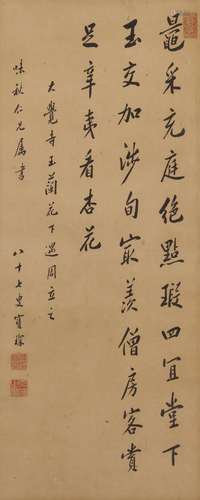 鼂采充庭絕點瑕四宜堂下
玉交加涉旬最羨僧房客賞
足辛夷看杏花
大覺寺玉蘭花下遇周立之
味秋仁兄屬書
八十七叟寶琛